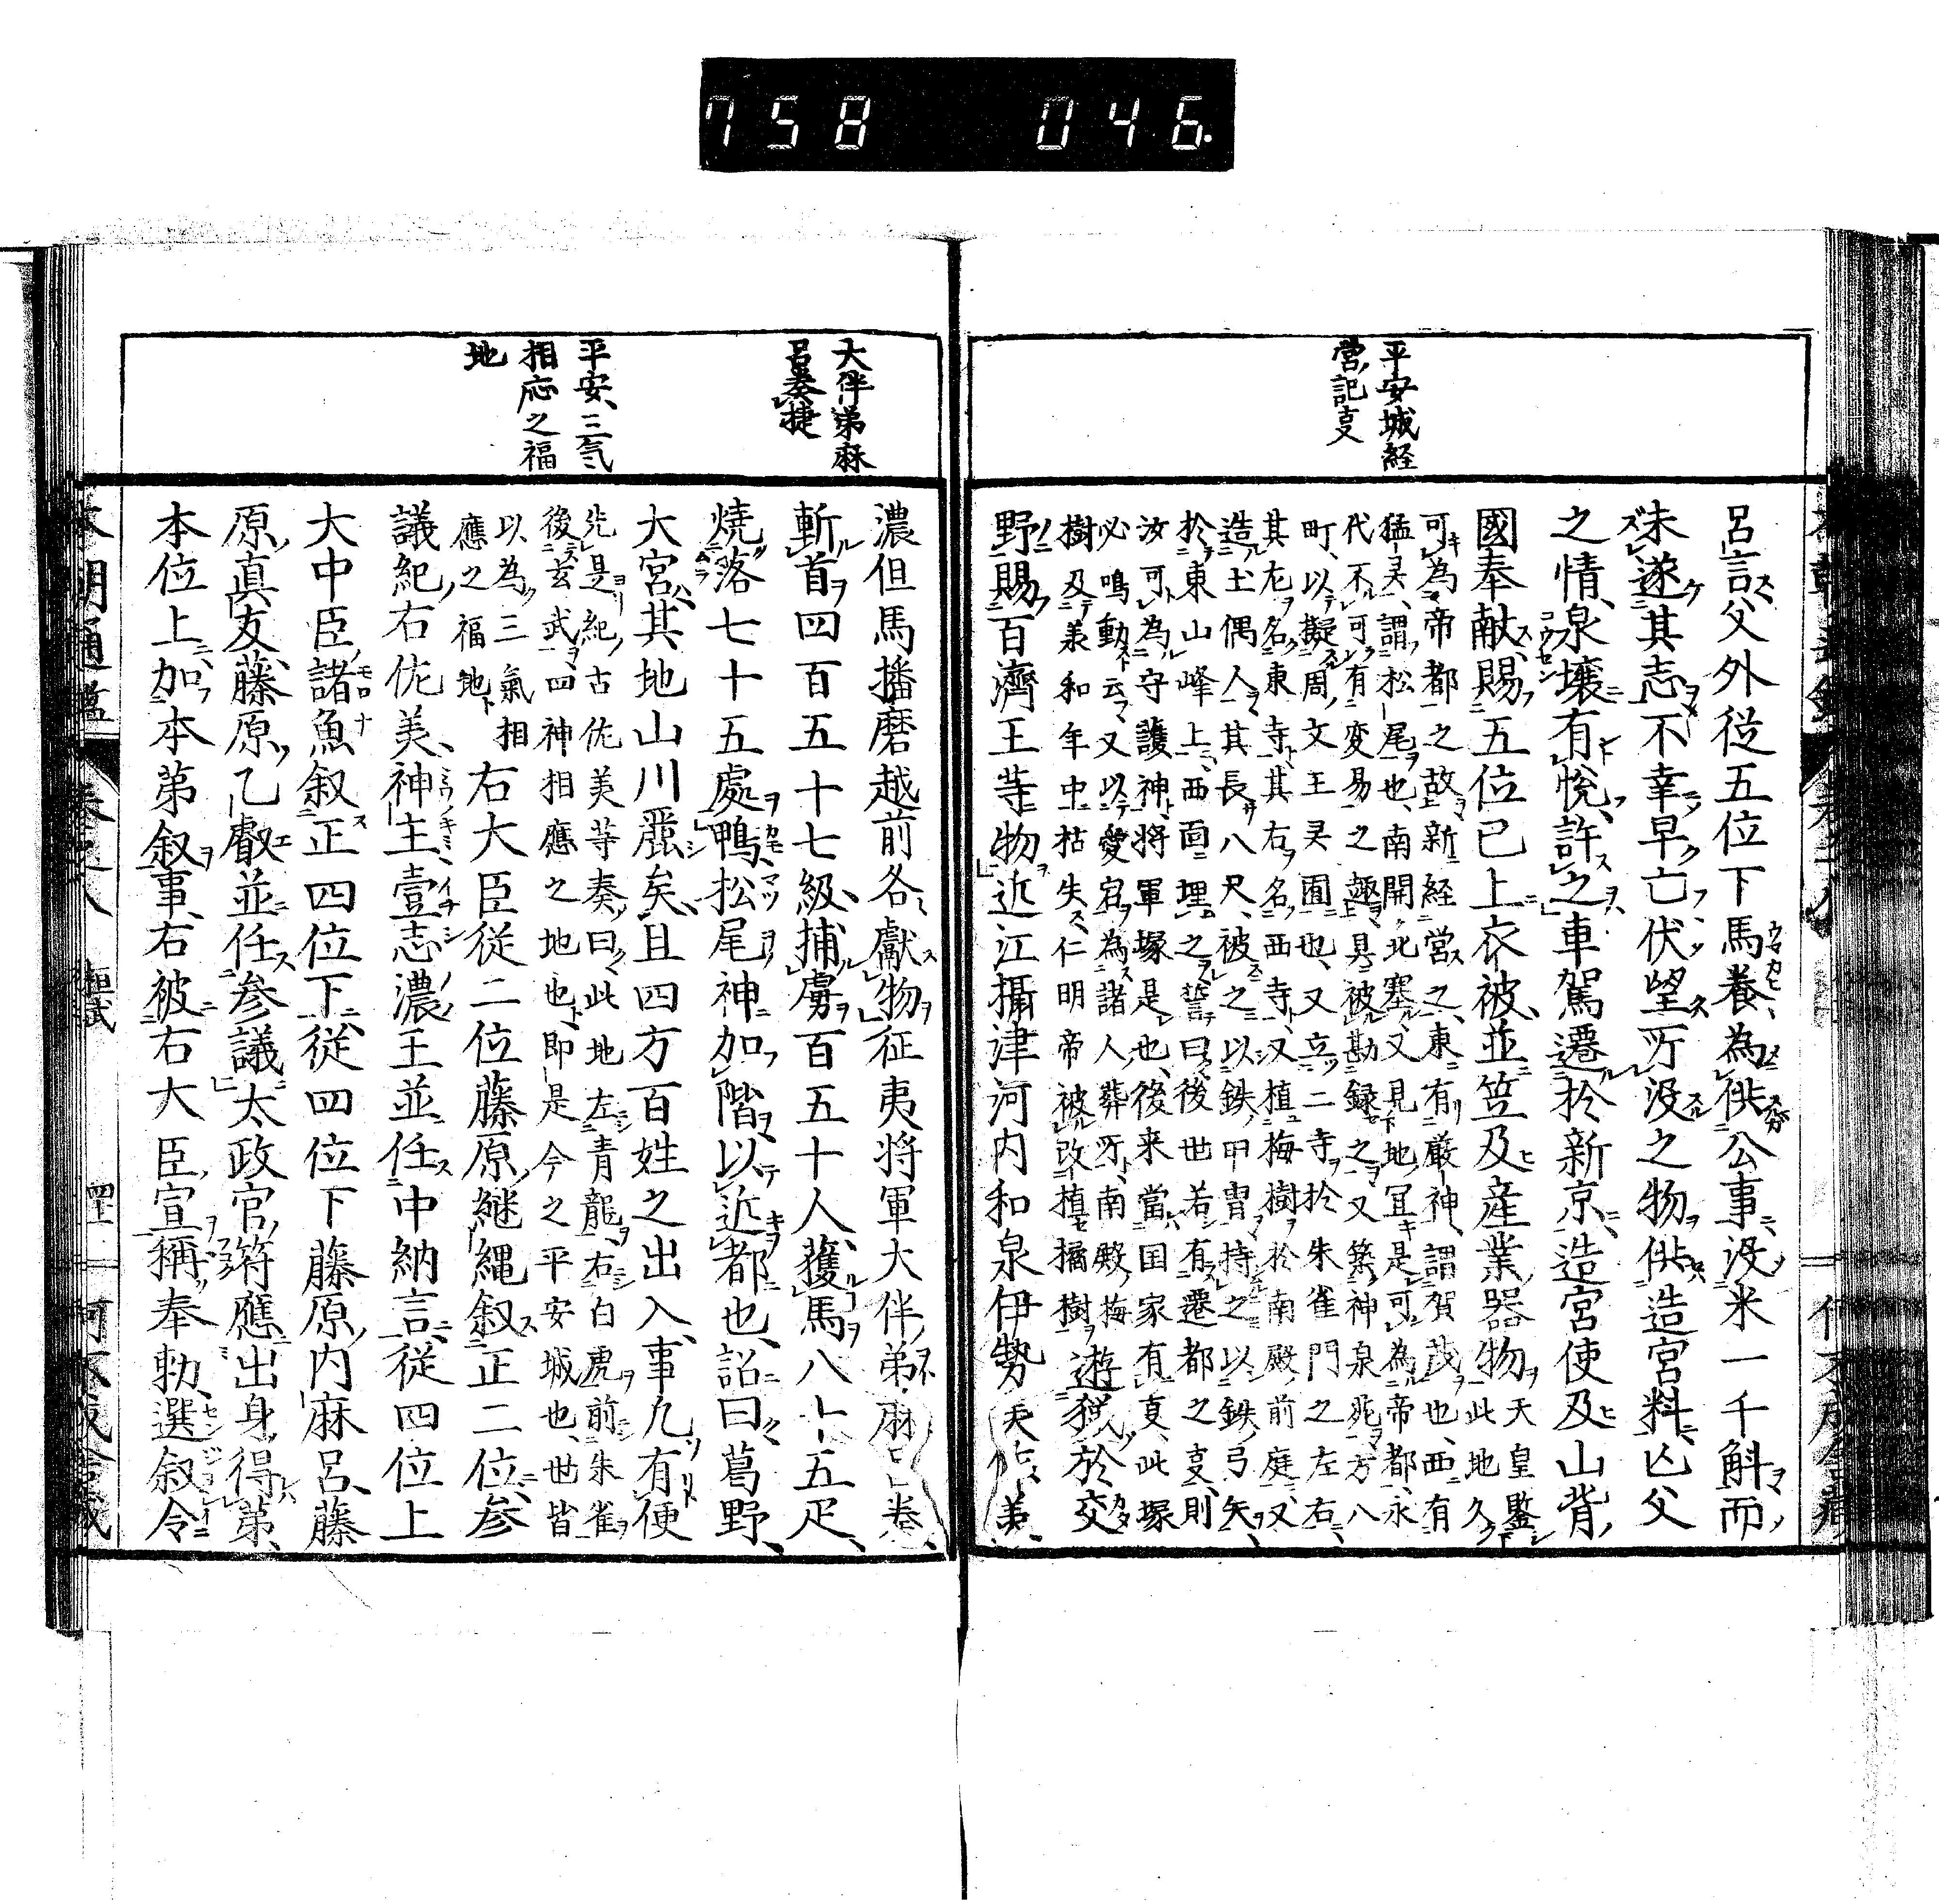 758 046.
平安城経
営記㕝
呂言父外從五位下馬養為供公事没米一千斛而
未遂其志不幸早亡伏望所没之物供造宮料亡父
之情泉壌有悦許之車駕遷於新京造宮使及山背
國奉献賜五位已上衣被並笠及産業器物
天皇鑒此地久
可為帝都之故新経営之東有厳神謂賀茂也西有
猛灵謂松尾也南開北塞又見地冝是可為帝都永
代不可有変易之趣具被勘録之又築神泉苑方八
町以擬周文王灵囿也又立二寺於朱雀門之左右
其左名東寺其右名西寺又植梅樹於南殿前庭又
造土偶人其長八尺被之以鉄甲冑持之以鉄弓矢
於東山峰上西面埋之誓曰後世若有遷都之㕝則
汝可為守護神将軍塚是也後来當国家有㕝此塚
必鳴動云又以愛宕為諸人葬所南殿梅
樹及美和年中枯失仁明帝被改植橘樹
遊猟於交
野賜百濟王等物近江攝津河内和泉伊勢
大伴弟麻
呂奏捷
平安三気
相応之福
地
濃但馬播磨越前各獻物征夷将軍大伴弟麻呂
斬首四百五十七級捕虜百五十人獲馬八十五疋
焼落七十五處鴨松尾神加階以近都也詔曰葛野
大宮其地山川麗矣且四方百姓之出入事凢有便
先是紀古佐美等奏曰此地左青龍右白虎前朱雀
後玄武四神相應之地也即是今之平安城也世皆
以為三氣相
應之福地
右大臣從二位藤原継縄叙正二位参
議紀右佐美神主壹志濃王並任中納言從四位上
大中臣諸魚叙正四位下從四位下藤原内麻呂藤
原真友藤原乙叡並任参議太政官符應出身得第
本位上加本第叙事右被右大臣宣稱奉勅選叙令